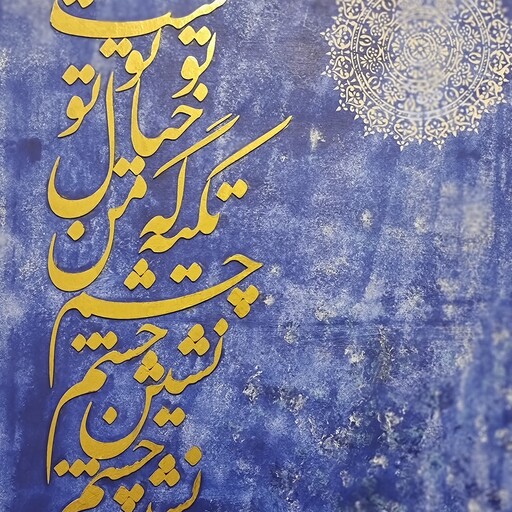 تو تو
خیال تو
تکیه گه من
چشم
نشین چشم
نشین چشم